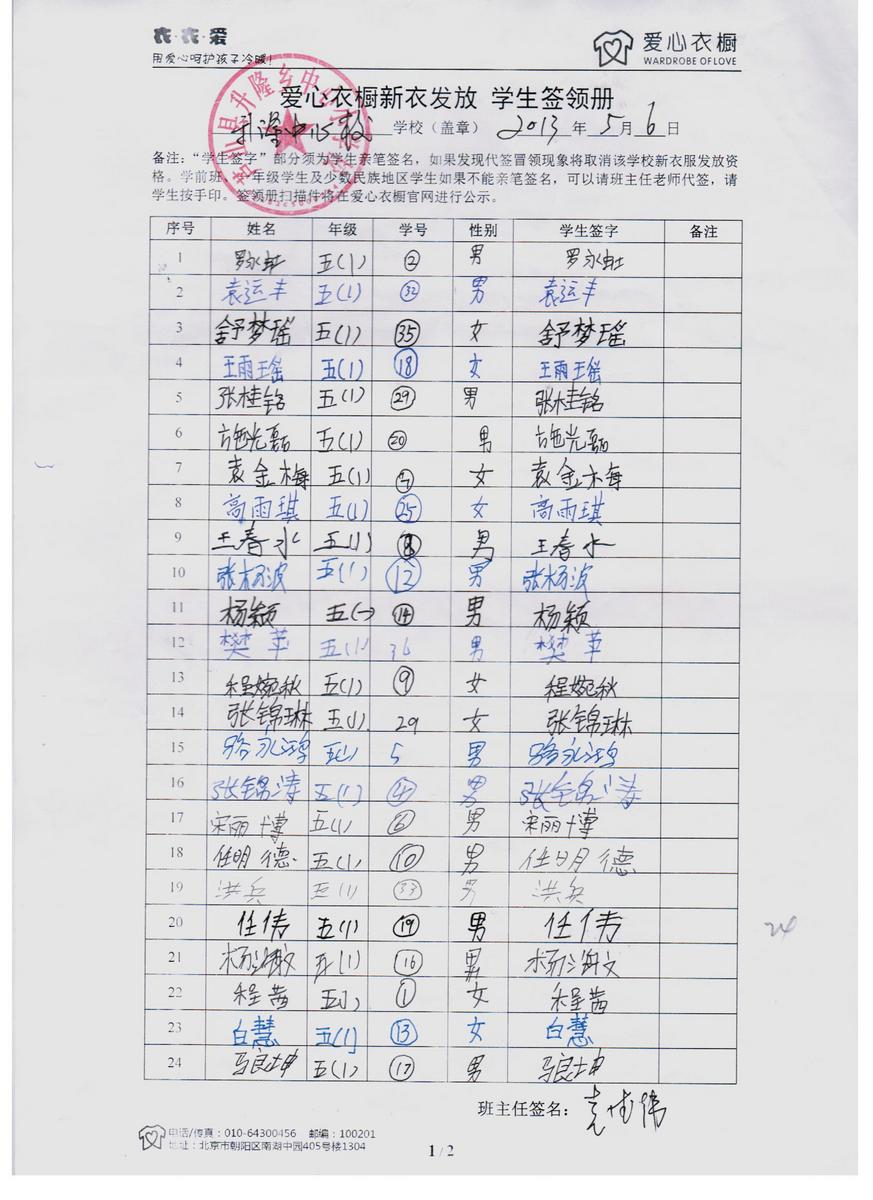 衣·衣·爱
用爱心呵护孩子冷暖!
爱心衣橱
WARDROBE OF LOVE
爱心衣橱新衣发放 学生签领册
升隆中心校 学校（盖章） 2013 年 5 月 6 日
备注：“学生签字”部分须为学生亲笔签名，如果发现代签冒领现象将取消该学校新衣服发放资
格。学前班、一年级学生及少数民族地区学生如果不能亲笔签名，可以请班主任老师代签，请
学生按手印。签领册扫描件将在爱心衣橱官网进行公示。
序号 姓名 年级 学号 性别 学生签字 备注
1 罗永虹 五(1) ② 男 罗永虹
2 袁运丰 五(1) ㉜ 男 袁运丰
3 舒梦瑶 五(1) ㉟ 女 舒梦瑶
4 王雨瑶 五(1) ⑱ 女 王雨瑶
5 张桂铭 五(1) ㉙ 男 张桂铭
6 施光磊 五(1) ⑳ 男 施光磊
7 袁金梅 五(1) 女 袁金梅
8 高雨琪 五(1) ㉕ 女 高雨琪
9 王春水 五(1) ⑧ 男 王春水
10 张杨波 五(1) ⑫ 男 张杨波
11 杨颖 五(一) ⑭ 男 杨颖
12 樊苹 五(1) 36 男 樊苹
13 程婉秋 五(1) ⑨ 女 程婉秋
14 张锦琳 五(1) 29 女 张锦琳
15 骆永鸿 五(1) 5 男 骆永鸿
16 张锦涛 五(1) ④ 男 张锦涛
17 宋丽博 五(1) ⑥ 男 宋丽博
18 任明德 五(1) ⑩ 男 任明德
19 洪兵 五(1) ㉝ 男 洪兵
20 任伟 五(1) ⑲ 男 任伟
21 杨海文 五(1) ⑯ 男 杨海文
22 程茜 五(1) ① 女 程茜
23 白慧 五(1) ⑬ 女 白慧
24 马良坤 五(1) ⑰ 男 马良坤
24
班主任签名：
电话/传真：010-64300456 邮编：100201
地址：北京市朝阳区南湖中园405号楼1304
1 / 2